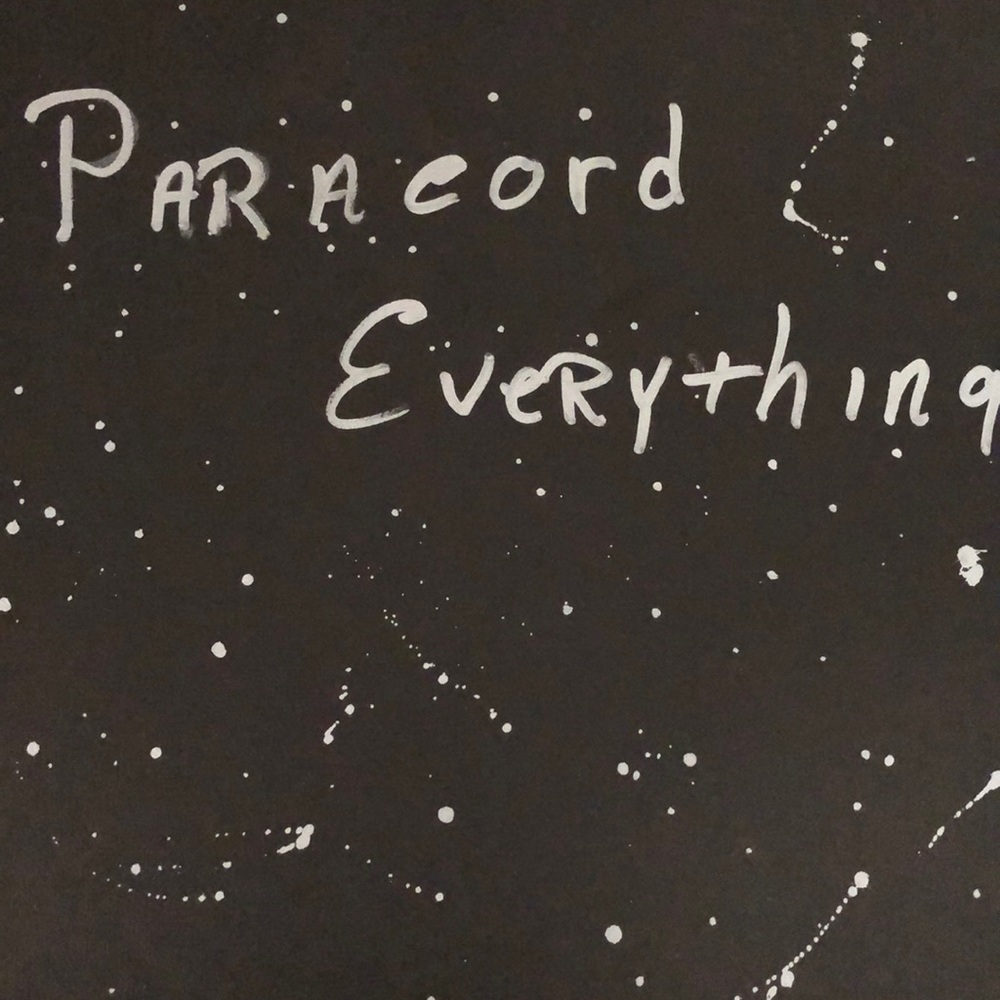 Paracord
Everything